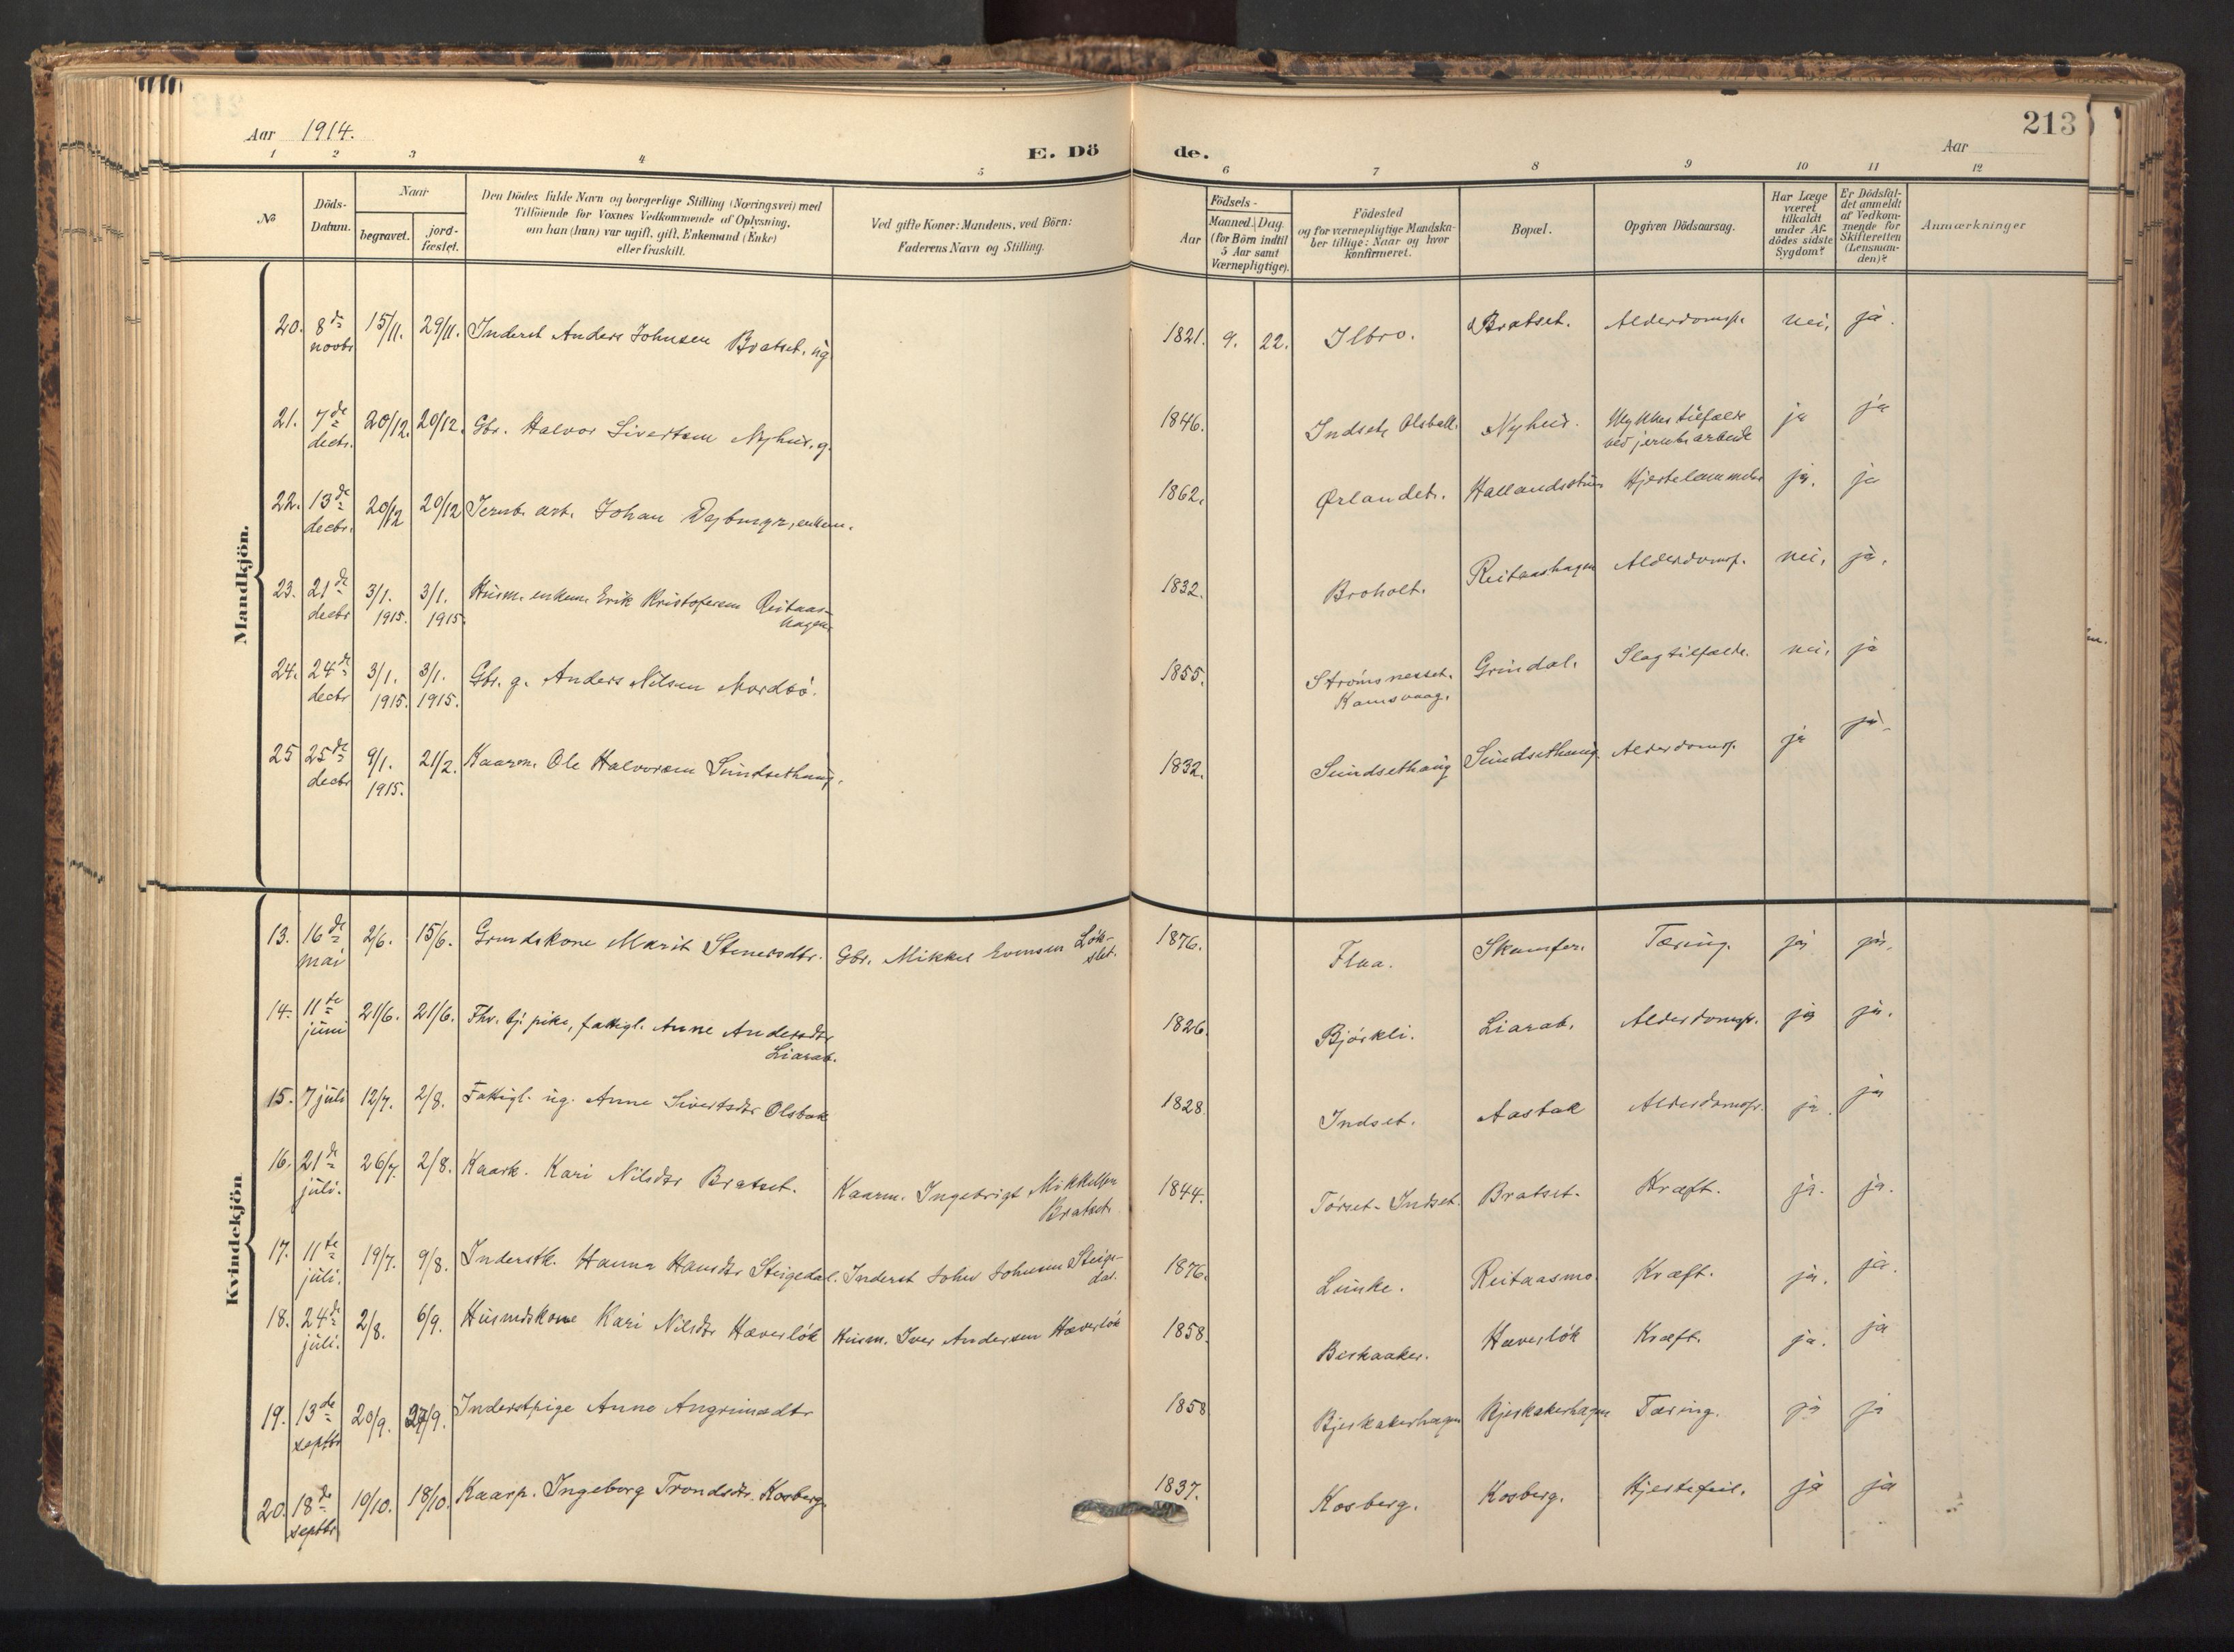 213
Aar 1914.
E. Dö de.
Aar
1 2 3 4 5 6 7 8 9 10 11 12
№
Döds-
Datum.
Naar
begravet.
jord-
fæstet.
Den Dödes fulde Navn og borgerlige Stilling (Næringsvei) med
Tilföiende for Voxnes Vedkommende af Oplysning,
om han (hun) var ugift, gift, Enkemand (Enke)
eller fraskilt.
Ved gifte Koner: Mandens, ved Börn:
Faderens Navn og Stilling.
Födsels-
Aar
Maaned. Dag.
(for Börn indtil
5 Aar samt
Værnepligtige).
Födested
og for værnepligtige Mandska-
ber tillige: Naar og hvor
konfirmeret.
Bopæl.
Opgiven Dödsaarsag.
Har Læge
været
tilkaldt
under Af-
dödes sidste
Sygdom?
Er Dödsfal-
det anmeldt
af Vedkom-
mende for
Skifteretten
(Lensman-
den)?
Anmærkninger
Mandkjön.
20. 8de 15/11. 29/11. Inderst Anders Johnsen Bratset. ug 1821. 9. 22. Ilbro. Bratset. Alderdomssv. nei, ja.
novbr
21. 7de 20/12. 20/12. Gbr. Halvor Sivertsen Nyhus. g. 1846. Indset, Olsball. Nyhus. Ulykkestilfælde ja ja
decbr. ved jernb. arbeide
22. 13de 20/12 20/12 Jernb. arb. Johan enkem. 1862. Ørlandet. Hjertelammelse ja. ja
decbr.
23. 21de 3/1. 3/1. Husm. enkem. Erik Kristofersen Reitaas- 1832. Broholt. Reitaashagen Alderdomssv. nei, ja.
decbr 1915. 1915. hagen.
24. 24de 3/1. 3/1. Gbr. g. Anders Nilsen Nordbø. 1855. Strømsnesset. Grindal. Slagtilfælde. nei, ja
decbr 1915. 1915. Kornsvaag.
25 25de 9/1. 21/2. Kaarm. Ole Halvorsen Sundsethaug. 1832. Sundsethaug Sundsethaug. Alderdomssv. ja ja.
decbr 1915.
Kvindekjön
13. 16de 2/6. 15/6. Grmdskone Marit Stenersdtr. Gbr. Mikkel Evensen Løk- 1876. Flaa. Skamfer. Tæring. ja ja.
mai slet.
14. 11te 21/6. 21/6. Fhv. tj. pike, fattigl. Anne Andersdtr 1826. Bjørkli. Liarab. Alderdomssv. ja ja.
juni Liarab.
15. 7 juli 12/7. 2/8. Fattigl. ug. Anne Sivertsdtr Olsbak 1828 Indset. Aasbak Alderdomssv. ja. ja
16. 21de 26/7. 2/8. Kaark. Kari Nilsdtr Bratset. Kaarm. Ingebrigt Mikkelsen 1844. Tørset- Indset. Bratset. Kræft. ja. ja.
juli. Bratset.
17. 11te 19/7. 9/8. Inderstk. Hanna Hansdtr Steigedal. Inderst John Johnsen Steige- 1876. Lunke. Reitaasmo. Kræft. ja. ja.
juli. dal.
18. 24de 2/8. 6/9. Husmdskone Kari Nilsdtr Hæverløk Husm. Iver Andersen Hæverløk 1858. Berkaaker. Hæverløk Kræft. ja. ja
juli.
19. 13de 20/9. 27/9. Inderstpige Anne Angrimsdtr 1858 Bjerkakerhagen Bjerkakerhagen Tæring. ja ja
septbr
20. 18de 10/10. 18/10. Kaarp. Ingeborg Trondsdtr. Kosberg. 1837. Kosberg. Kosberg. Hjertefeil. ja ja
septbr.